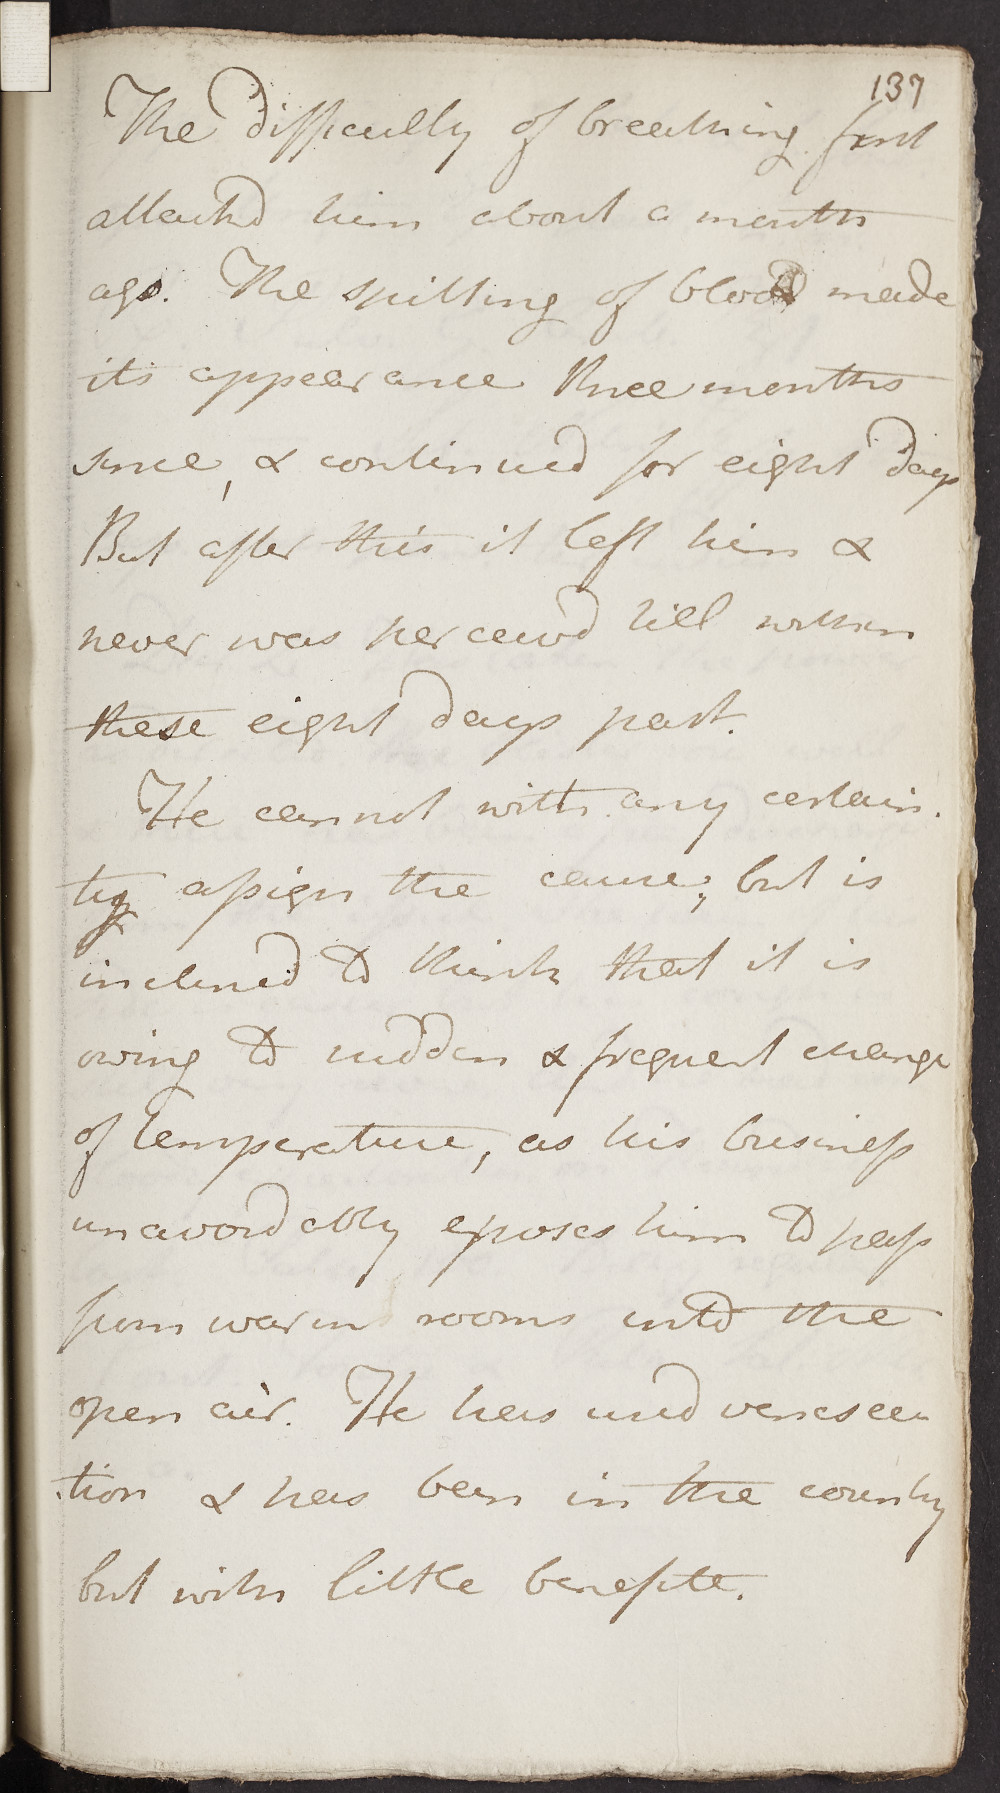 137
The difficulty of breathing first
attackd him about a month
ago. The spitting of blood made
its appearance three months
since, & continued for eight days
But after this it left him &
never was perceivd till within
these eight days past.
He cannot with any certain-
ty assign the cause; but is
inclined to think that it is
owing to sudden & frequent change
of temperature, as his business
unavoidably eposes him to pass
from warm rooms into the
open air. He has used venesec-
tion & has been in the country
but with little benefite.